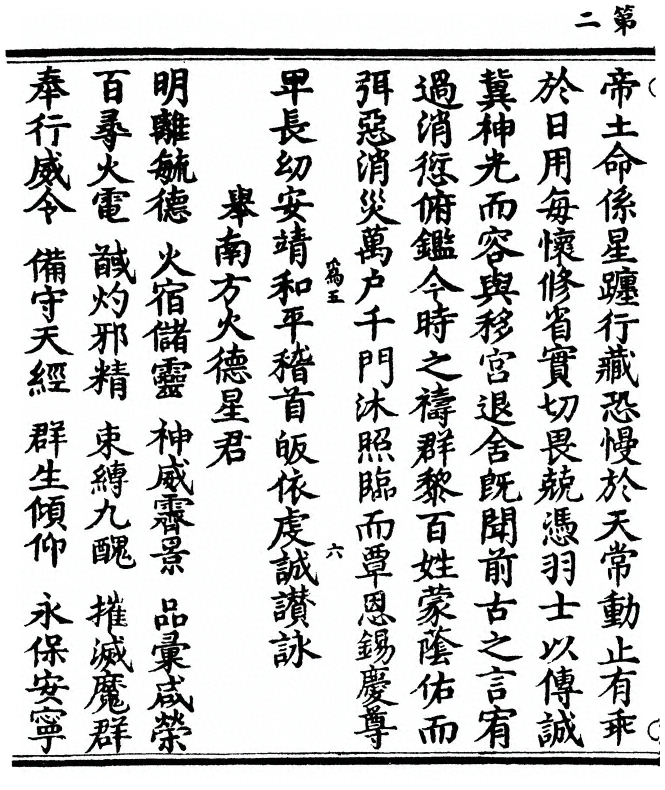 第二
帝土命係星躔行藏恐慢於天常動止有乖
於日用每懷修省實切畏兢憑羽士以傳誠
冀神光而容與移宮退舍旣聞前古之言宥
過消愆俯鑑今時之禱群黎百姓蒙蔭佑而
弭惡消災萬户千門沐照臨而覃恩錫慶尊
爲五 六
卑長幼安靖和平稽首皈依虔誠讃詠
舉南方火德星君
明離毓德 火宿儲靈 神威霽景 品彙咸榮
百㝷火電 馘灼邪精 束縛九醜 摧滅魔群
奉行威令 備守天經 群生傾仰 永保安寧